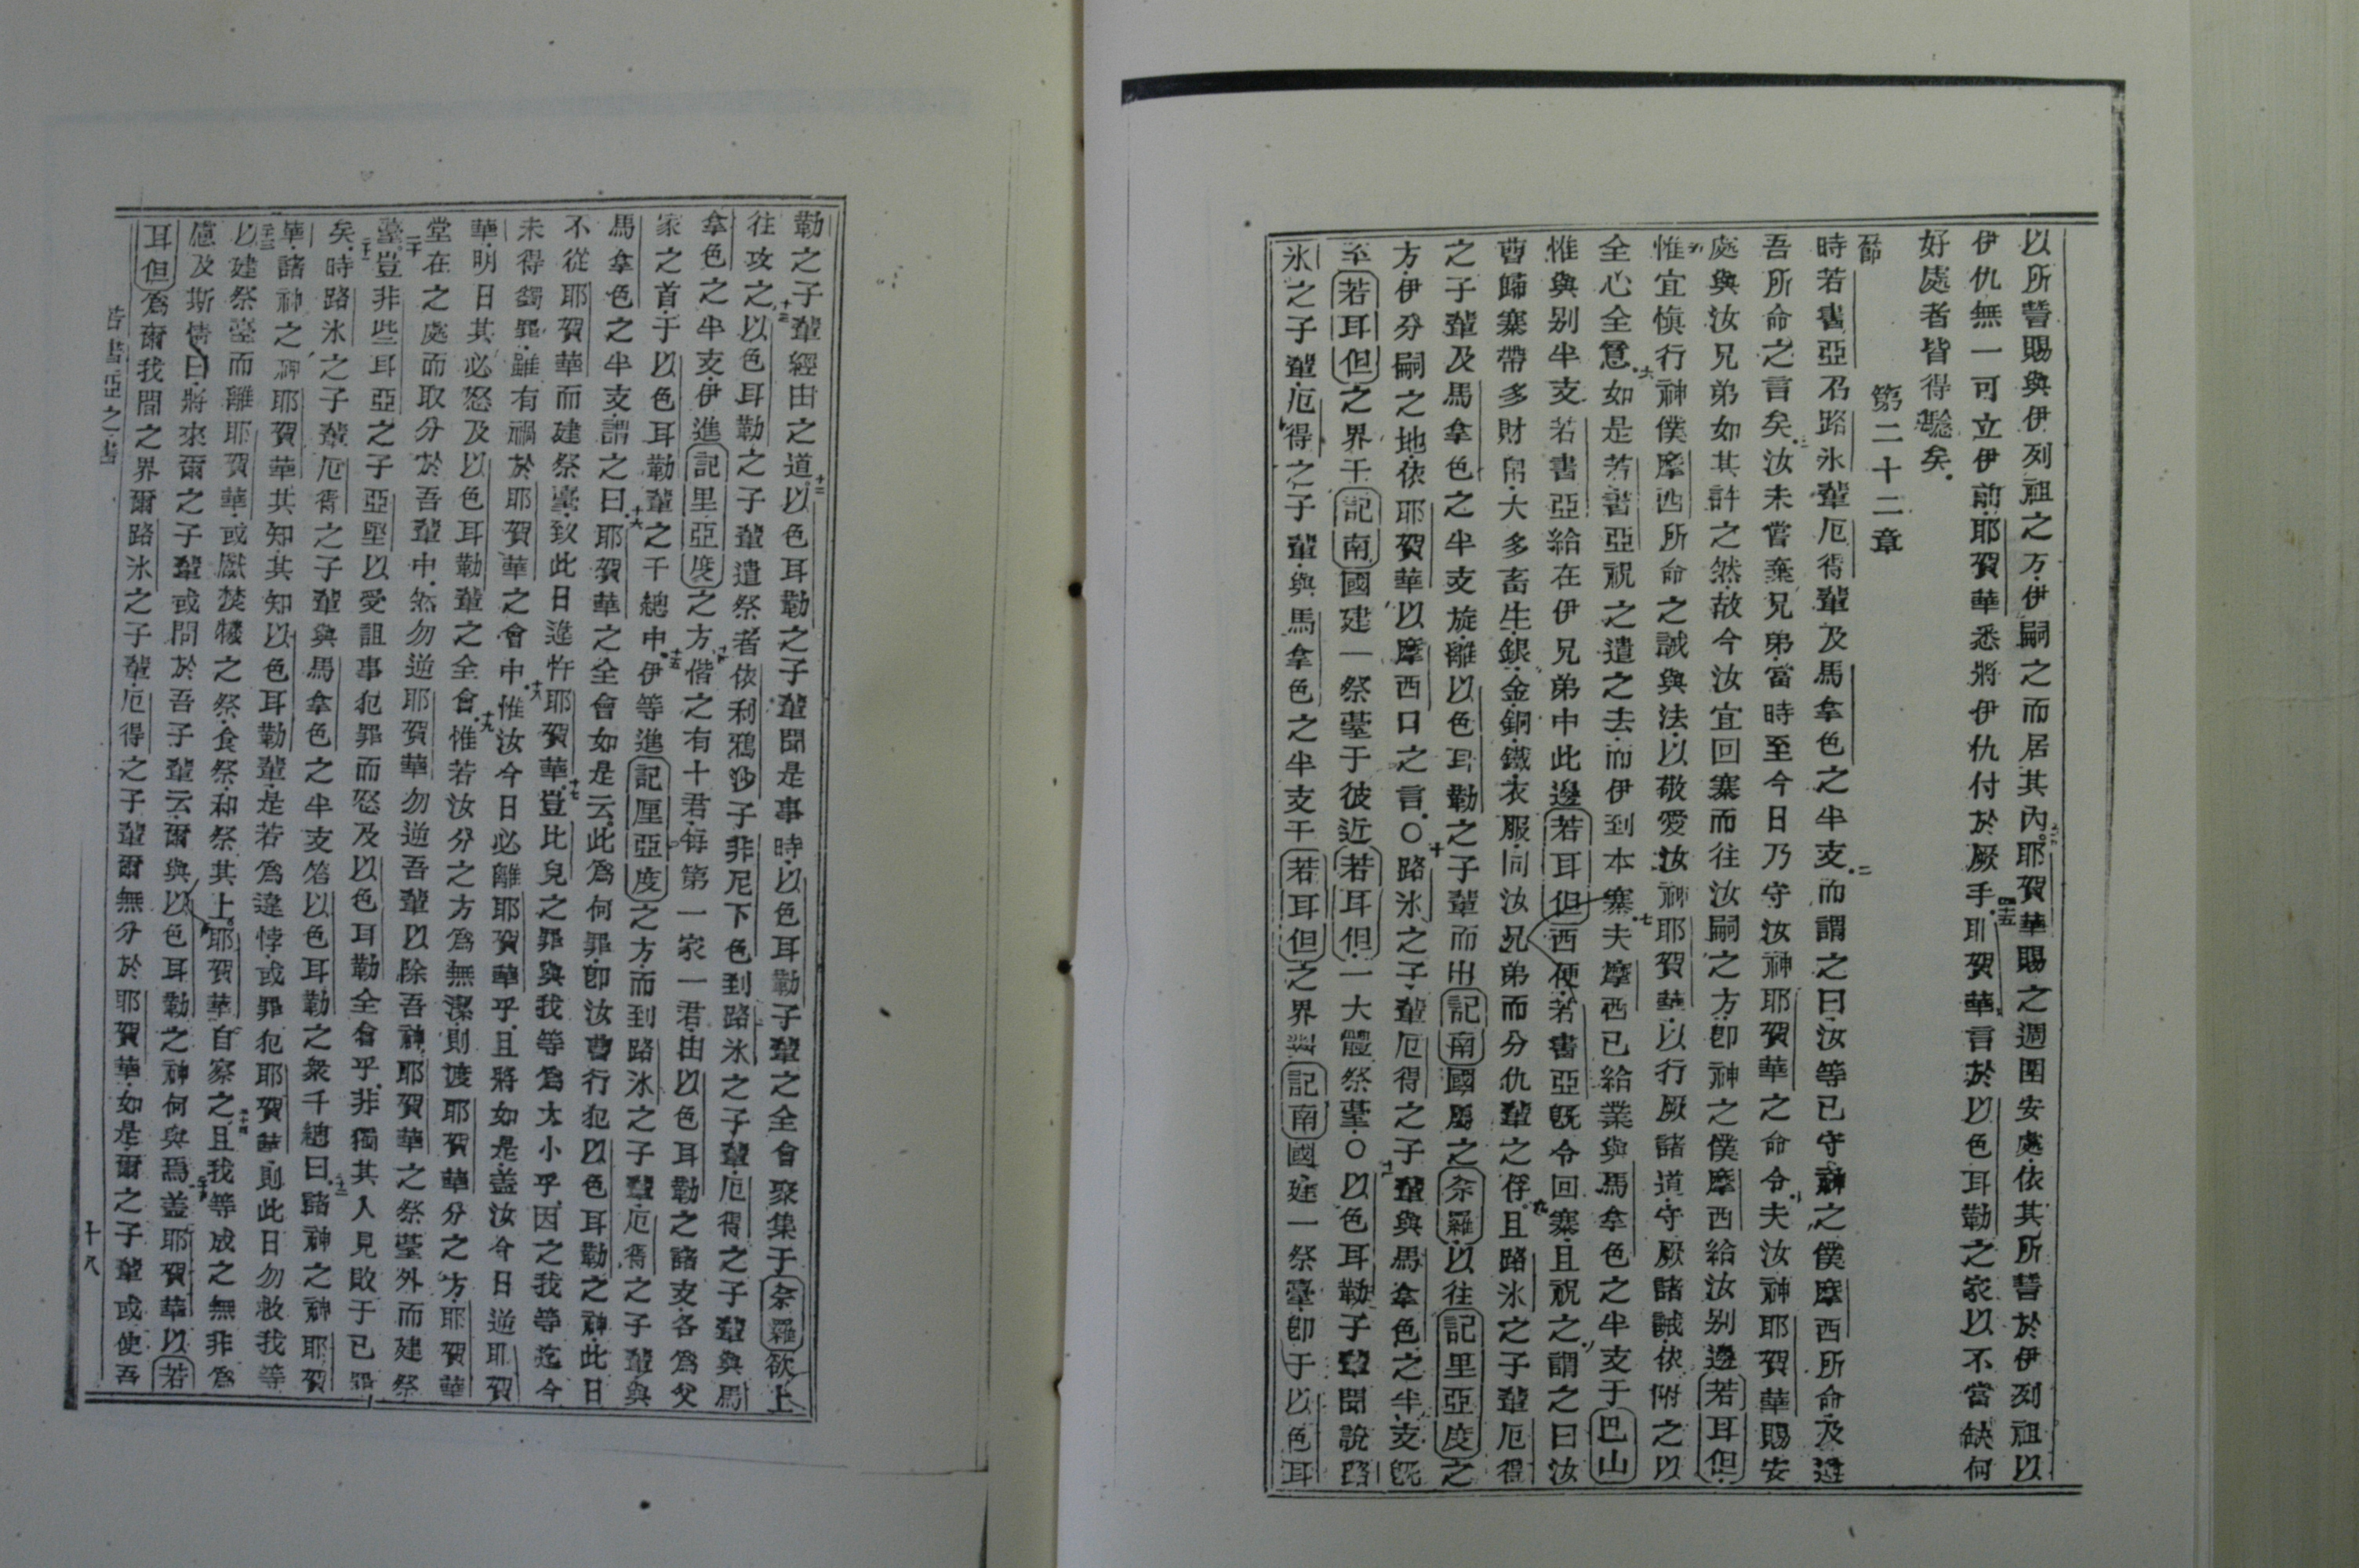 以所誓賜與伊列祖之方伊嗣之而居其內耶賀華賜之週圍安處依其所誓於伊列祖以
伊仇無一可立伊前耶賀華悉將伊仇付於厥手耶賀華言於以色耳勒之家以不當缺何
好處者皆得驗矣
第二十二章
節
時若書亞召路氷輩厄得輩及馬拿色之半支而謂之曰汝等已守神之僕摩西所命及遵
吾所命之言矣汝未嘗棄兄弟當時至今日乃守汝神耶賀華之命令夫汝神耶賀華賜安
處與汝兄弟如其許之然故今汝宜回寨而往汝嗣之方卽神之僕摩西給汝別邊若耳但
惟宜愼行神僕摩西所命之誡與法以敬愛汝神耶賀華以行厥諸道守厥諸誡依附之以
全心全意如是若書亞祝之遣之去而伊到本寨夫摩西已給業與馬拿色之半支于巴山
惟與別半支若書亞給在伊兄弟中此邊若耳但西便若書亞旣令回寨且祝之謂之曰汝
曹歸寨帶多財帛大多畜生銀金銅鐵衣服同汝兄弟而分仇輩之俘且路氷之子輩厄得
之子輩及馬拿色之半支旋離以色耳勒之子輩而出記南國屬之奈羅以往記里亞度之
方伊分嗣之地依耶賀華以摩西口之言〇路氷之子輩厄得之子輩與馬拿色之半支旣
至若耳但之界于記南國建一祭臺于彼近若耳但一大體祭臺〇以色耳勒子輩聞說路
氷之子輩厄得之子輩與馬拿色之半支于若耳但之界對記南國建一祭臺卽于以色耳
勒之子輩經由之道以色耳勒之子輩聞是事時以色耳勒子輩之全會聚集于奈羅欲上
往攻之以色耳勒之子輩遣祭者依利鴉沙子非尼下色到路氷之子輩厄得之子輩與馬
拿色之半支伊進記里亞度之方偕之有十君每第一家一君由以色耳勒之諸支各爲父
家之首于以色耳勒輩之千總中伊等進記厘亞度之方而到路氷之子輩厄得之子輩與
馬拿色之半支謂之曰耶賀華之全會如是云此爲何罪卽汝曹行犯以色耳勒之神此日
不從耶賀華而建祭臺致此日逆忤耶賀華豈比兒之罪與我等爲太小乎因之我等迄今
未得蠲罪雖有禍於耶賀華之會中惟汝今日必離耶賀華乎且將如是盖汝今日逆耶賀
華明日其必怒及以色耳勒輩之全會惟若汝分之方爲無潔則渡耶賀華分之方耶賀華
堂在之處而取分於吾輩中然勿逆耶賀華勿逆吾輩以除吾神耶賀華之祭臺外而建祭
臺豈非些耳亞之子亞堅以受詛事犯罪而怒及以色耳勒全會乎非獨其人見敗于已罪
矣時路氷之子輩厄得之子輩與馬拿色之半支答以色耳勒之衆千總曰諸神之神耶賀
華諸神之神耶賀華其知其知以色耳勒輩是若爲違悖或罪犯耶賀華則此日勿救我等
以建祭臺而離耶賀華或獻焚犧之祭食祭和祭其上耶賀華自察之且我等成之無非爲
慮及斯情曰將來爾之子輩或問於吾子輩云爾與以色耳勒之神何與焉盖耶賀華以若
耳但爲爾我間之界爾路氷之子輩厄得之子輩爾無分於耶賀華如是爾之子輩或使吾
若書亞之書
十八